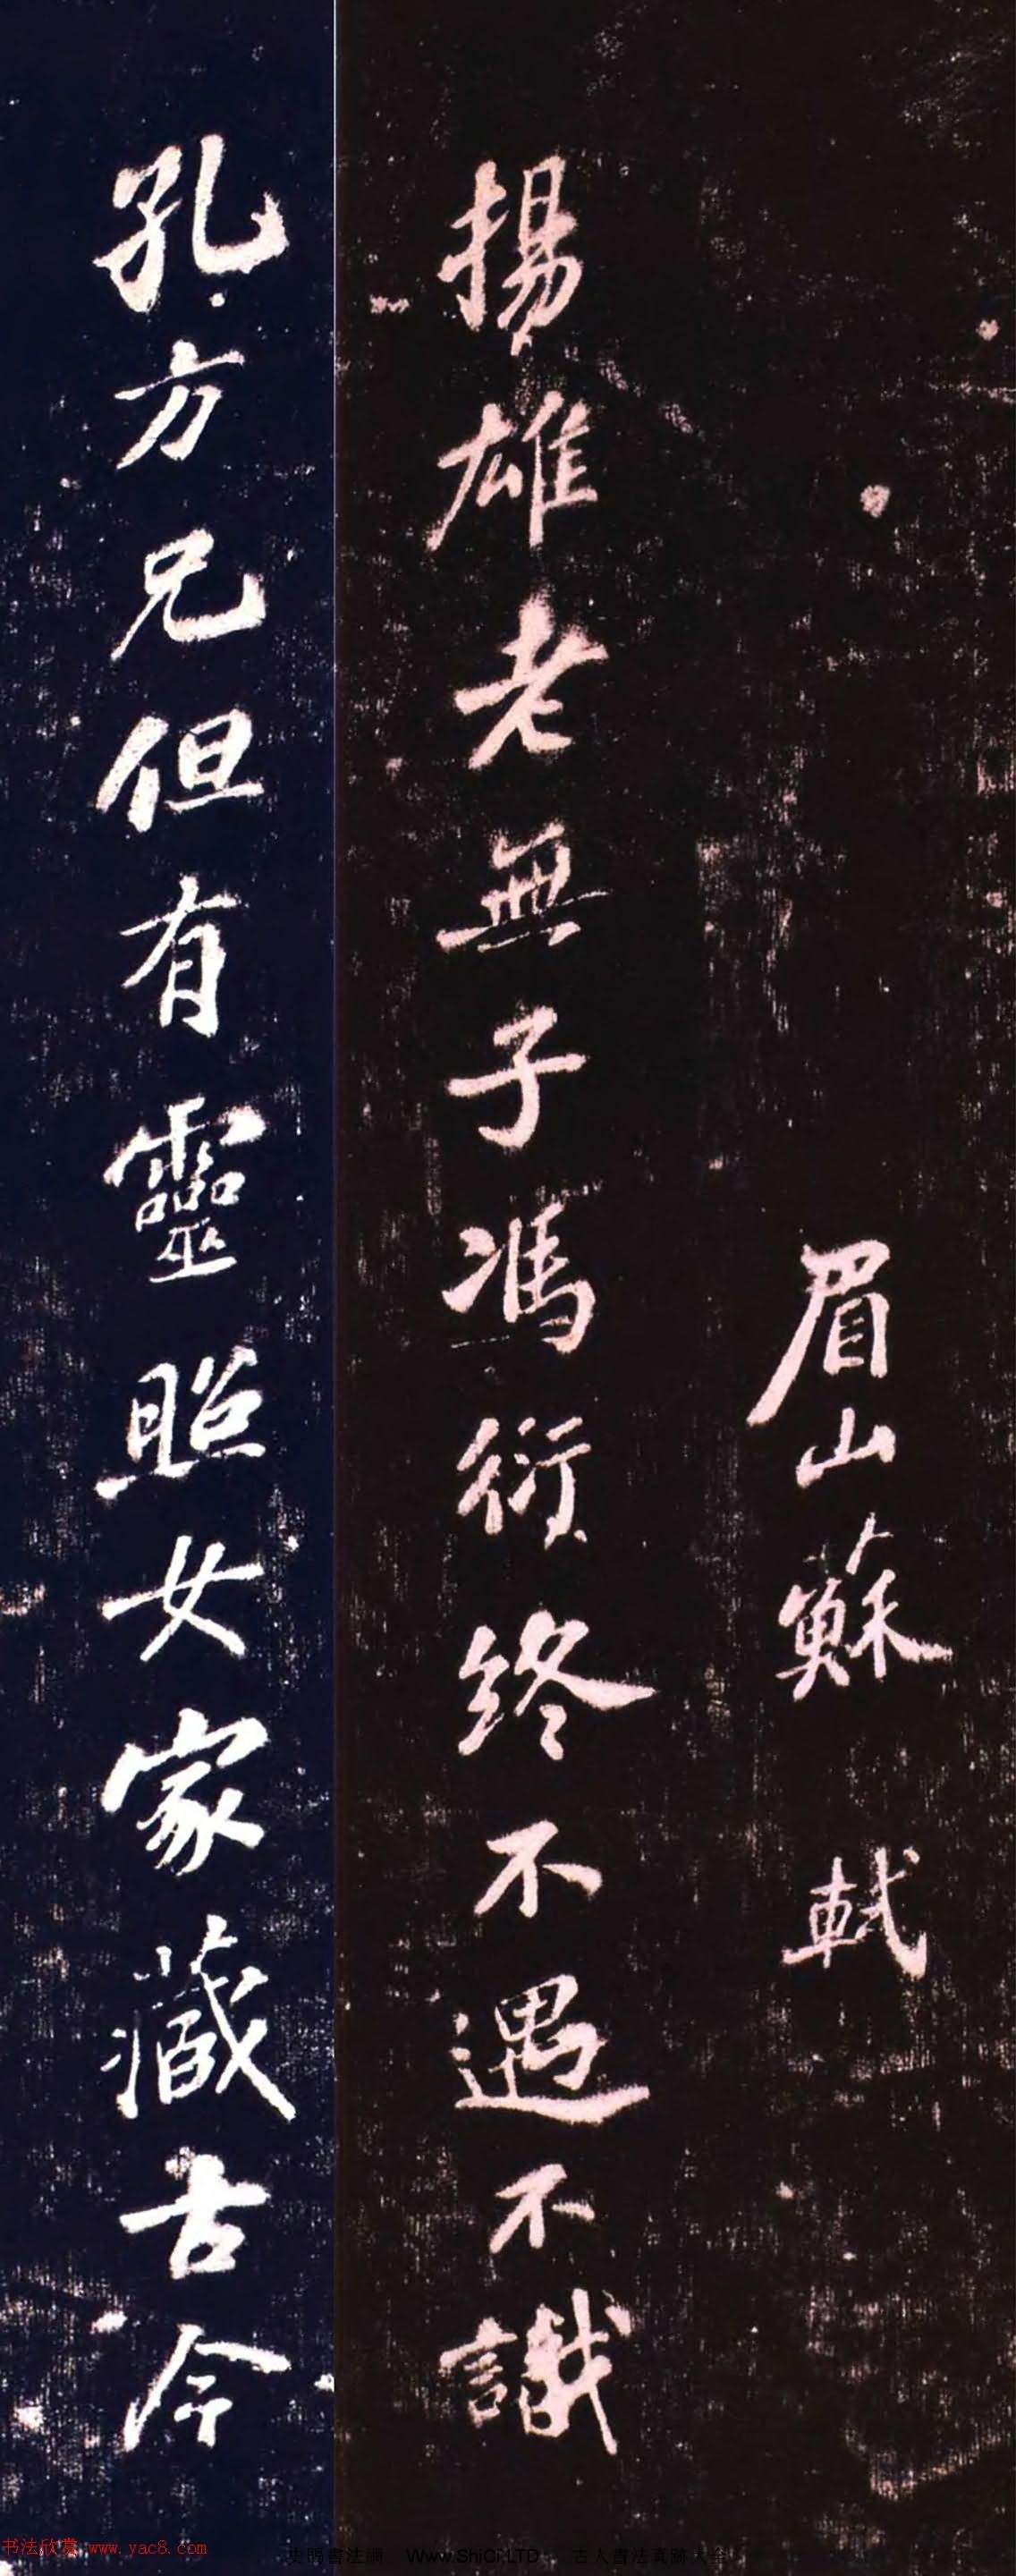 眉山蘇軾
揚雄老無子馮衍終不遇不識
孔方兄但有靈照女家藏古今
书法欣赏 www.yac8.com
Www.ShiCi.LTD 古人書法真跡大全